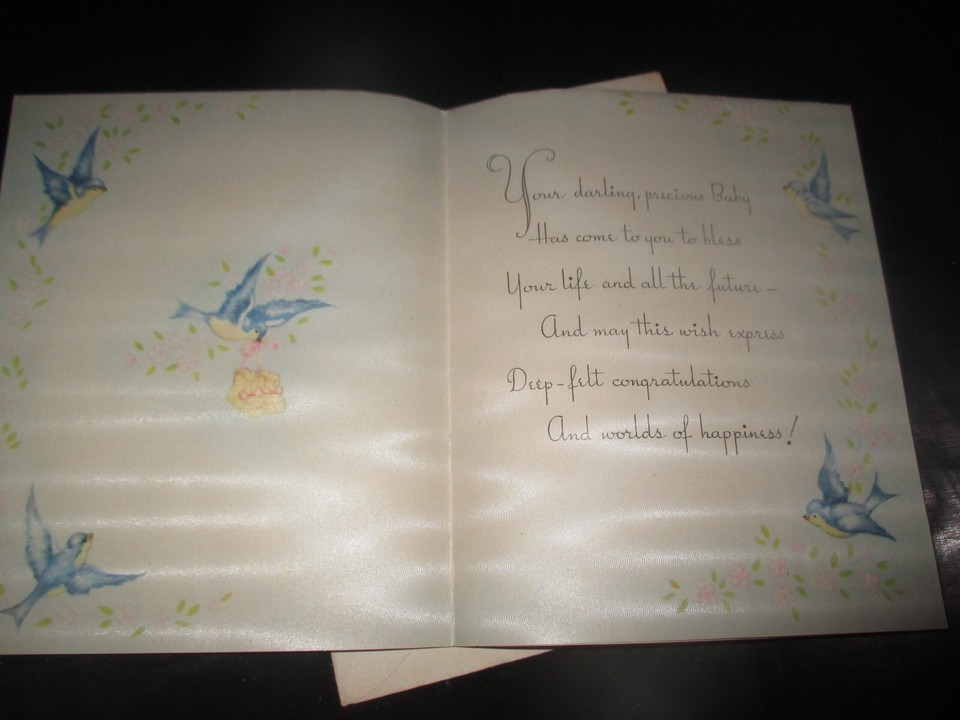 Your darling, precious Baby
Has come to you to bless
Your life and all the future –
And may this wish express
Deep-felt congratulations
And worlds of happiness!